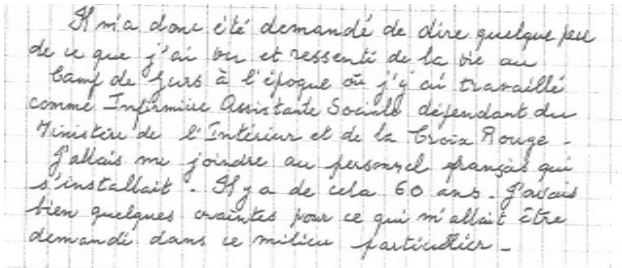 Il m'a donc été demandé de dire quelque peu
de ce que j'ai vu et ressenti de la vie au
Camp de Gurs à l'époque où j'y ai travaillé
comme Infirmière Assistante Sociale dépendant du
Ministère de l'Intérieur et de la Croix Rouge -
J'allais me joindre au personnel français qui
s'installait - Il y a de cela 60 ans - J'avais
bien quelques craintes pour ce qui m'allait être
demandé dans ce milieu particulier -